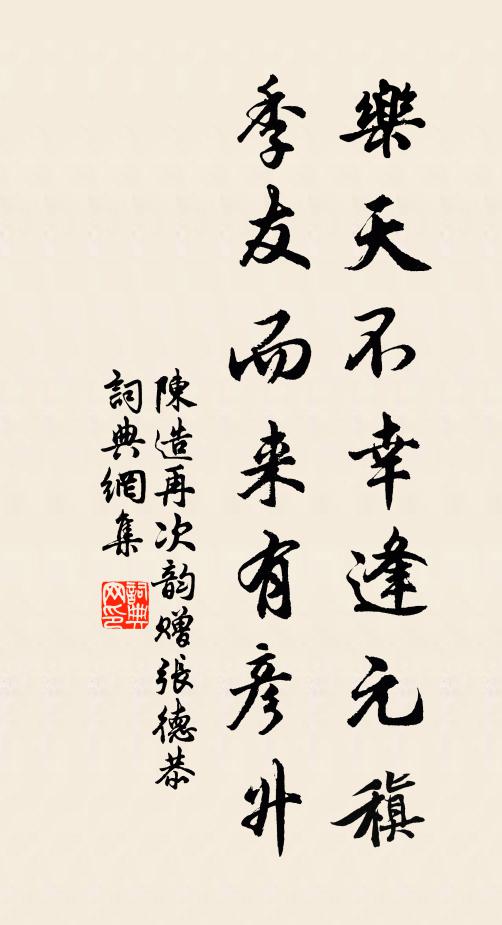 樂天不幸逢元稹
季友而来有彦升
陳造再次韵贈張德恭
詞典網集
詞典网印